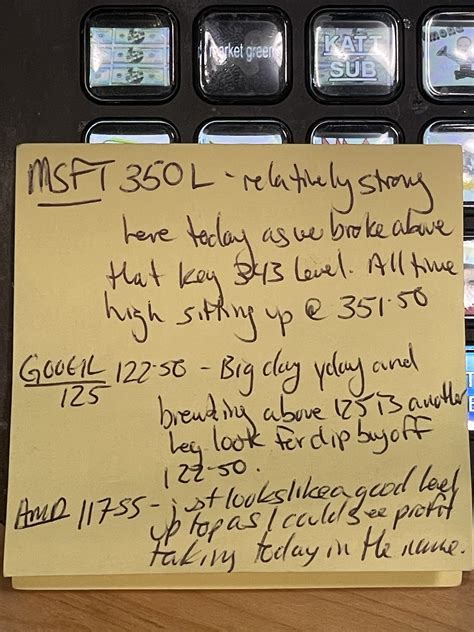 market green
KATT
SUB
MSFT 350L - relatively strong
here today as we broke above
that key 343 level. All time
high sitting up @ 351.50
GOOGL 122.50 - Big day yday and
125
breaking above 125 is another
leg look for dip buy off
122.50.
AMD 117.55 - just looks like a good level
up top as I could see profit
taking today in the name.